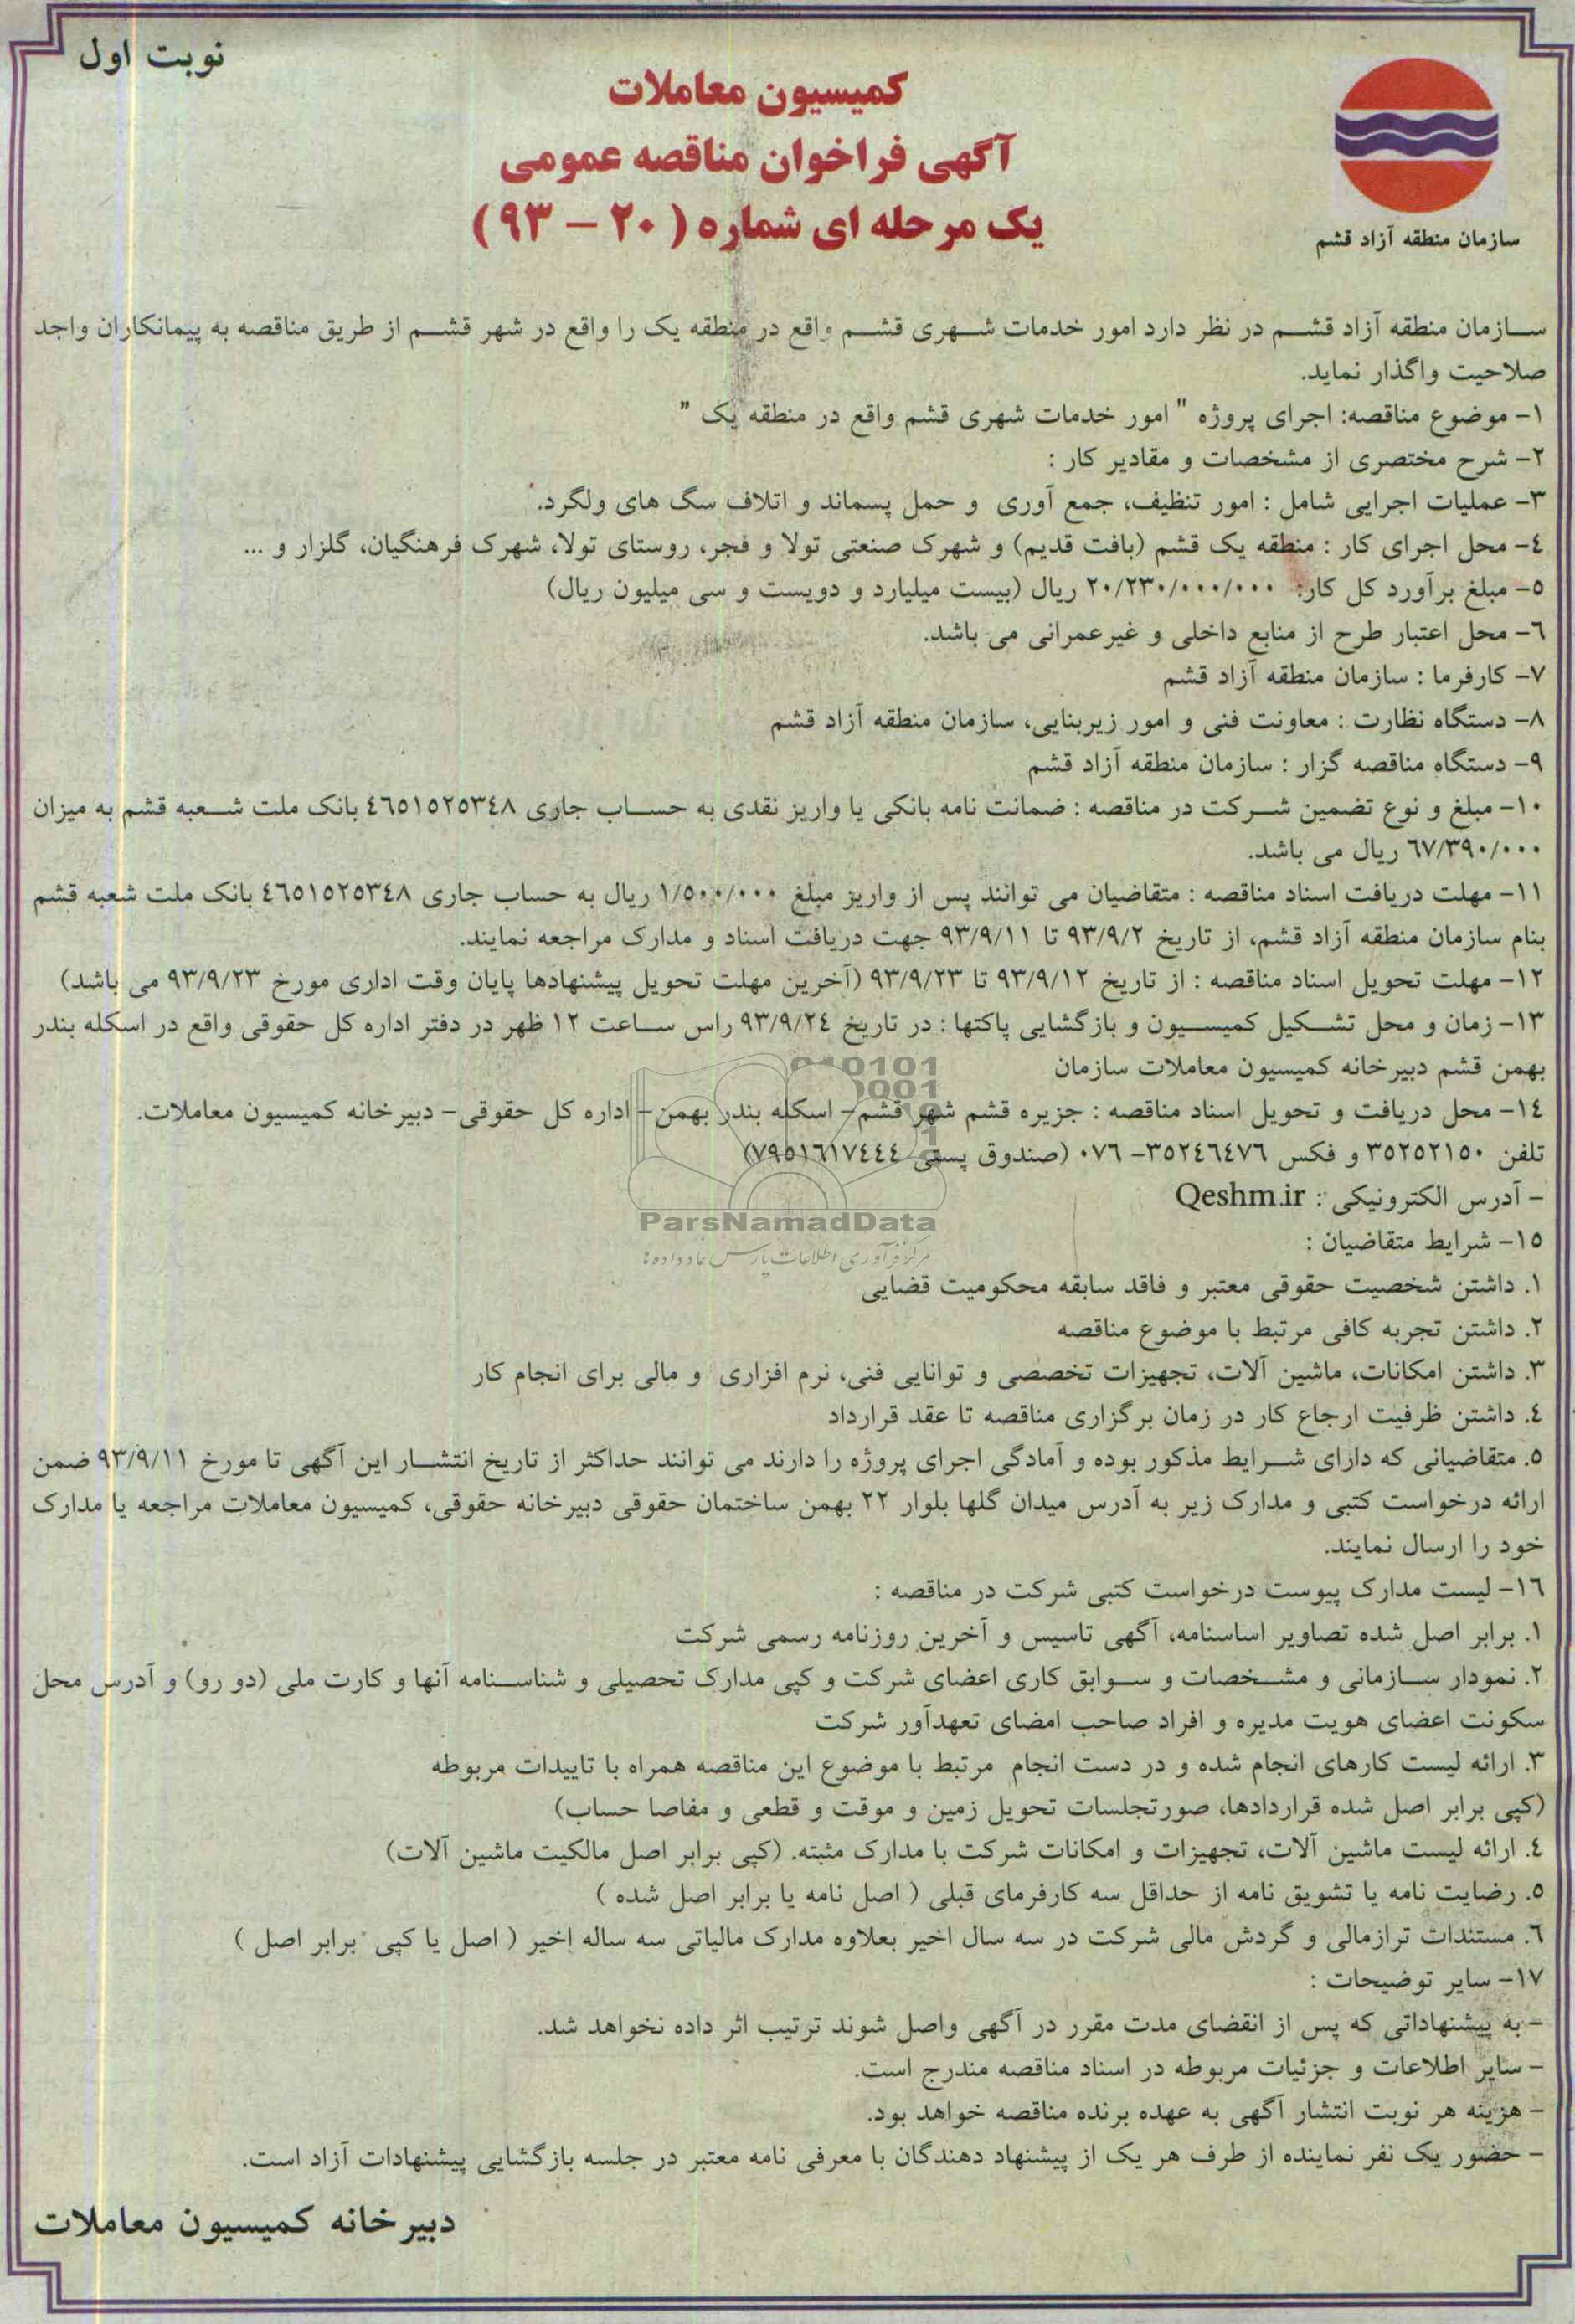 نوبت اول
کمیسیون معاملات
آگهی فراخوان مناقصه عمومی
یک مرحله ای شماره ( ۲۰ – ۹۳ )
سازمان منطقه آزاد قشم
سازمان منطقه آزاد قشم در نظر دارد امور خدمات شهری قشم واقع در منطقه یک را واقع در شهر قشم از طریق مناقصه به پیمانکاران واجد
صلاحیت واگذار نماید.
۱- موضوع مناقصه: اجرای پروژه " امور خدمات شهری قشم واقع در منطقه یک "
۲- شرح مختصری از مشخصات و مقادیر کار :
۳- عملیات اجرایی شامل : امور تنظیف، جمع آوری و حمل پسماند و اتلاف سگ های ولگرد.
٤- محل اجرای کار : منطقه یک قشم (بافت قدیم) و شهرک صنعتی تولا و فجر، روستای تولا، شهرک فرهنگیان، گلزار و ...
٥- مبلغ برآورد کل کار: ۲۰/۲۳۰/۰۰۰/۰۰۰ ریال (بیست میلیارد و دویست و سی میلیون ریال)
٦- محل اعتبار طرح از منابع داخلی و غیرعمرانی می باشد.
۷- کارفرما : سازمان منطقه آزاد قشم
۸- دستگاه نظارت : معاونت فنی و امور زیربنایی، سازمان منطقه آزاد قشم
۹- دستگاه مناقصه گزار : سازمان منطقه آزاد قشم
۱۰- مبلغ و نوع تضمین شرکت در مناقصه : ضمانت نامه بانکی یا واریز نقدی به حساب جاری ٤٦٥١٥٢٥٣٤٨ بانک ملت شعبه قشم به میزان
٦٧/٣٩٠/٠٠٠ ریال می باشد.
۱۱- مهلت دریافت اسناد مناقصه : متقاضیان می توانند پس از واریز مبلغ ۱/٥۰۰/۰۰۰ ریال به حساب جاری ٤٦٥١٥٢٥٣٤٨ بانک ملت شعبه قشم
بنام سازمان منطقه آزاد قشم، از تاریخ ۹۳/۹/۲ تا ۹۳/۹/۱۱ جهت دریافت اسناد و مدارک مراجعه نمایند.
۱۲- مهلت تحویل اسناد مناقصه : از تاریخ ۹۳/۹/۱۲ تا ۹۳/۹/۲۳ (آخرین مهلت تحویل پیشنهادها پایان وقت اداری مورخ ۹۳/۹/۲۳ می باشد)
۱۳- زمان و محل تشکیل کمیسیون و بازگشایی پاکتها : در تاریخ ۹۳/۹/۲٤ راس ساعت ۱۲ ظهر در دفتر اداره کل حقوقی واقع در اسکله بندر
بهمن قشم دبیرخانه کمیسیون معاملات سازمان
۱٤- محل دریافت و تحویل اسناد مناقصه : جزیره قشم شهر قشم- اسکله بندر بهمن- اداره کل حقوقی- دبیرخانه کمیسیون معاملات.
تلفن ۳٥۲٥۲۱٥۰ و فکس ۳٥۲٤٦٤۷٦- ۰۷٦ (صندوق پستی ۷۹٥۱٦۱۷٤٤٤)
- آدرس الکترونیکی : Qeshm.ir
ParsNamadData
مرکز فرآوری اطلاعات پارس نماد داده ها
۱٥- شرایط متقاضیان :
۱. داشتن شخصیت حقوقی معتبر و فاقد سابقه محکومیت قضایی
۲. داشتن تجربه کافی مرتبط با موضوع مناقصه
۳. داشتن امکانات، ماشین آلات، تجهیزات تخصصی و توانایی فنی، نرم افزاری و مالی برای انجام کار
٤. داشتن ظرفیت ارجاع کار در زمان برگزاری مناقصه تا عقد قرارداد
٥. متقاضیانی که دارای شرایط مذکور بوده و آمادگی اجرای پروژه را دارند می توانند حداکثر از تاریخ انتشار این آگهی تا مورخ ۹۳/۹/۱۱ ضمن
ارائه درخواست کتبی و مدارک زیر به آدرس میدان گلها بلوار ۲۲ بهمن ساختمان حقوقی دبیرخانه حقوقی، کمیسیون معاملات مراجعه یا مدارک
خود را ارسال نمایند.
۱٦- لیست مدارک پیوست درخواست کتبی شرکت در مناقصه :
۱. برابر اصل شده تصاویر اساسنامه، آگهی تاسیس و آخرین روزنامه رسمی شرکت
۲. نمودار سازمانی و مشخصات و سوابق کاری اعضای شرکت و کپی مدارک تحصیلی و شناسنامه آنها و کارت ملی (دو رو) و آدرس محل
سکونت اعضای هویت مدیره و افراد صاحب امضای تعهدآور شرکت
۳. ارائه لیست کارهای انجام شده و در دست انجام مرتبط با موضوع این مناقصه همراه با تاییدات مربوطه
(کپی برابر اصل شده قراردادها، صورتجلسات تحویل زمین و موقت و قطعی و مفاصا حساب)
٤. ارائه لیست ماشین آلات، تجهیزات و امکانات شرکت با مدارک مثبته. (کپی برابر اصل مالکیت ماشین آلات)
٥. رضایت نامه یا تشویق نامه از حداقل سه کارفرمای قبلی ( اصل نامه یا برابر اصل شده )
٦. مستندات ترازمالی و گردش مالی شرکت در سه سال اخیر بعلاوه مدارک مالیاتی سه ساله اخیر ( اصل یا کپی برابر اصل )
۱۷- سایر توضیحات :
- به پیشنهاداتی که پس از انقضای مدت مقرر در آگهی واصل شوند ترتیب اثر داده نخواهد شد.
- سایر اطلاعات و جزئیات مربوطه در اسناد مناقصه مندرج است.
- هزینه هر نوبت انتشار آگهی به عهده برنده مناقصه خواهد بود.
- حضور یک نفر نماینده از طرف هر یک از پیشنهاد دهندگان با معرفی نامه معتبر در جلسه بازگشایی پیشنهادات آزاد است.
دبیرخانه کمیسیون معاملات